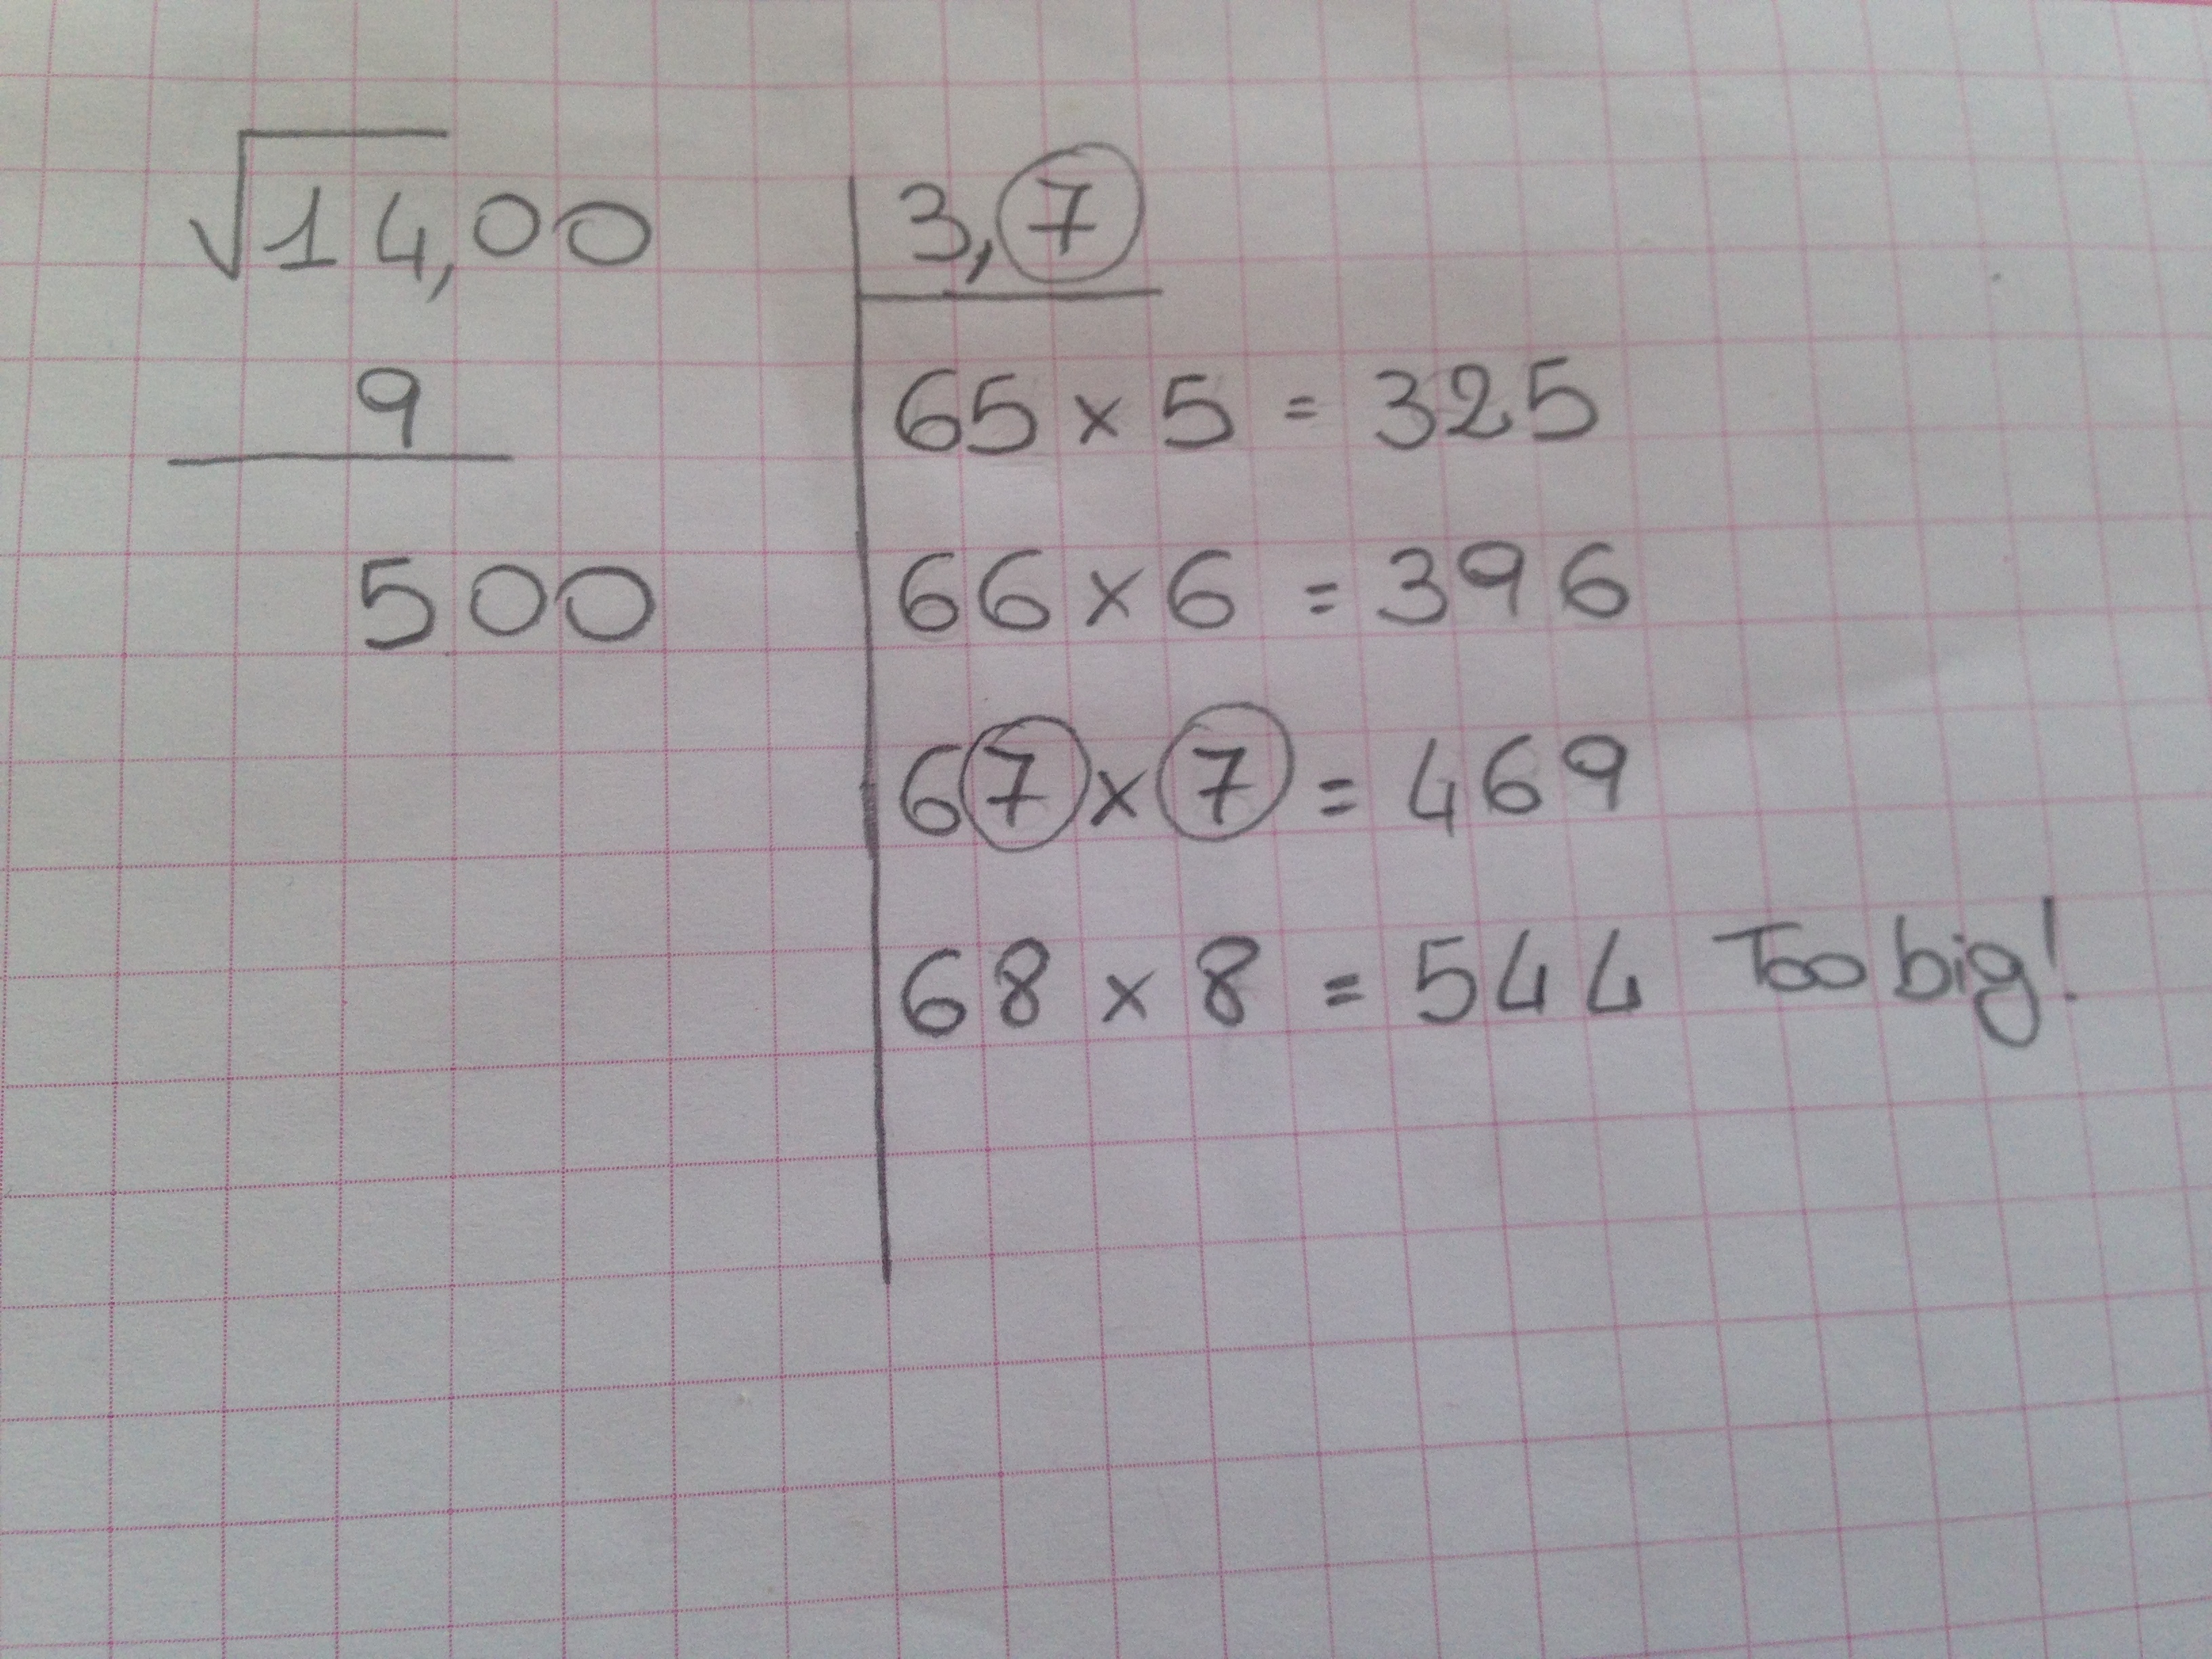 √14,00
9
500
3,7
65 × 5 = 325
66 × 6 = 396
67 × 7 = 469
68 × 8 = 544 Too big!